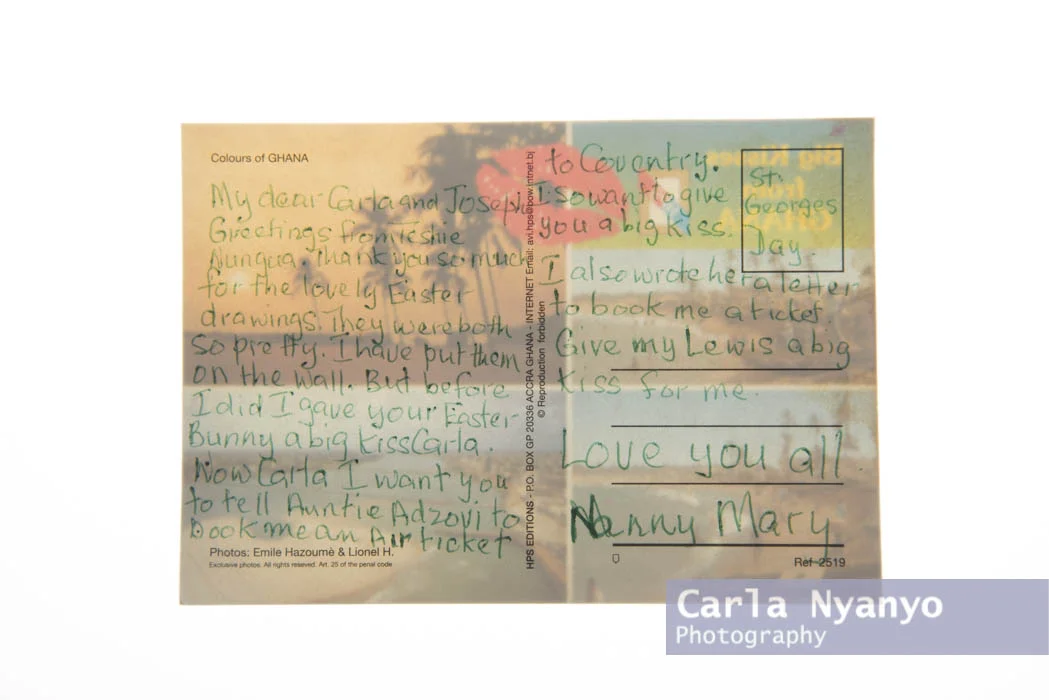 Colours of GHANA
My dear Carla and Joseph
Greetings from Teshie
Nungua. Thank you so much
for the lovely Easter
drawings. They were both
so pretty. I have put them
on the wall. But before
I did I gave your Easter
Bunny a big kiss Carla.
Now Carla I want you
to tell Auntie Adzovi to
book me an Air ticket
Photos: Emile Hazoumè & Lionel H.
Exclusive photos. All rights reseved. Art. 25 of the penal code
HPS EDITIONS - P.O. BOX GP 20336 ACCRA GHANA - INTERNET Email: avi.hps@bow.intnet.bj
© Reproduction forbidden
to Coventry.
I so want to give
you a big kiss.
I also wrote her a letter
to book me a ticket.
Give my Lewis a big
kiss for me.
Love you all
Nanny Mary
St.
Georges
Day.
Big Kisses
from
GHANA
Réf 2519
Carla Nyanyo
Photography